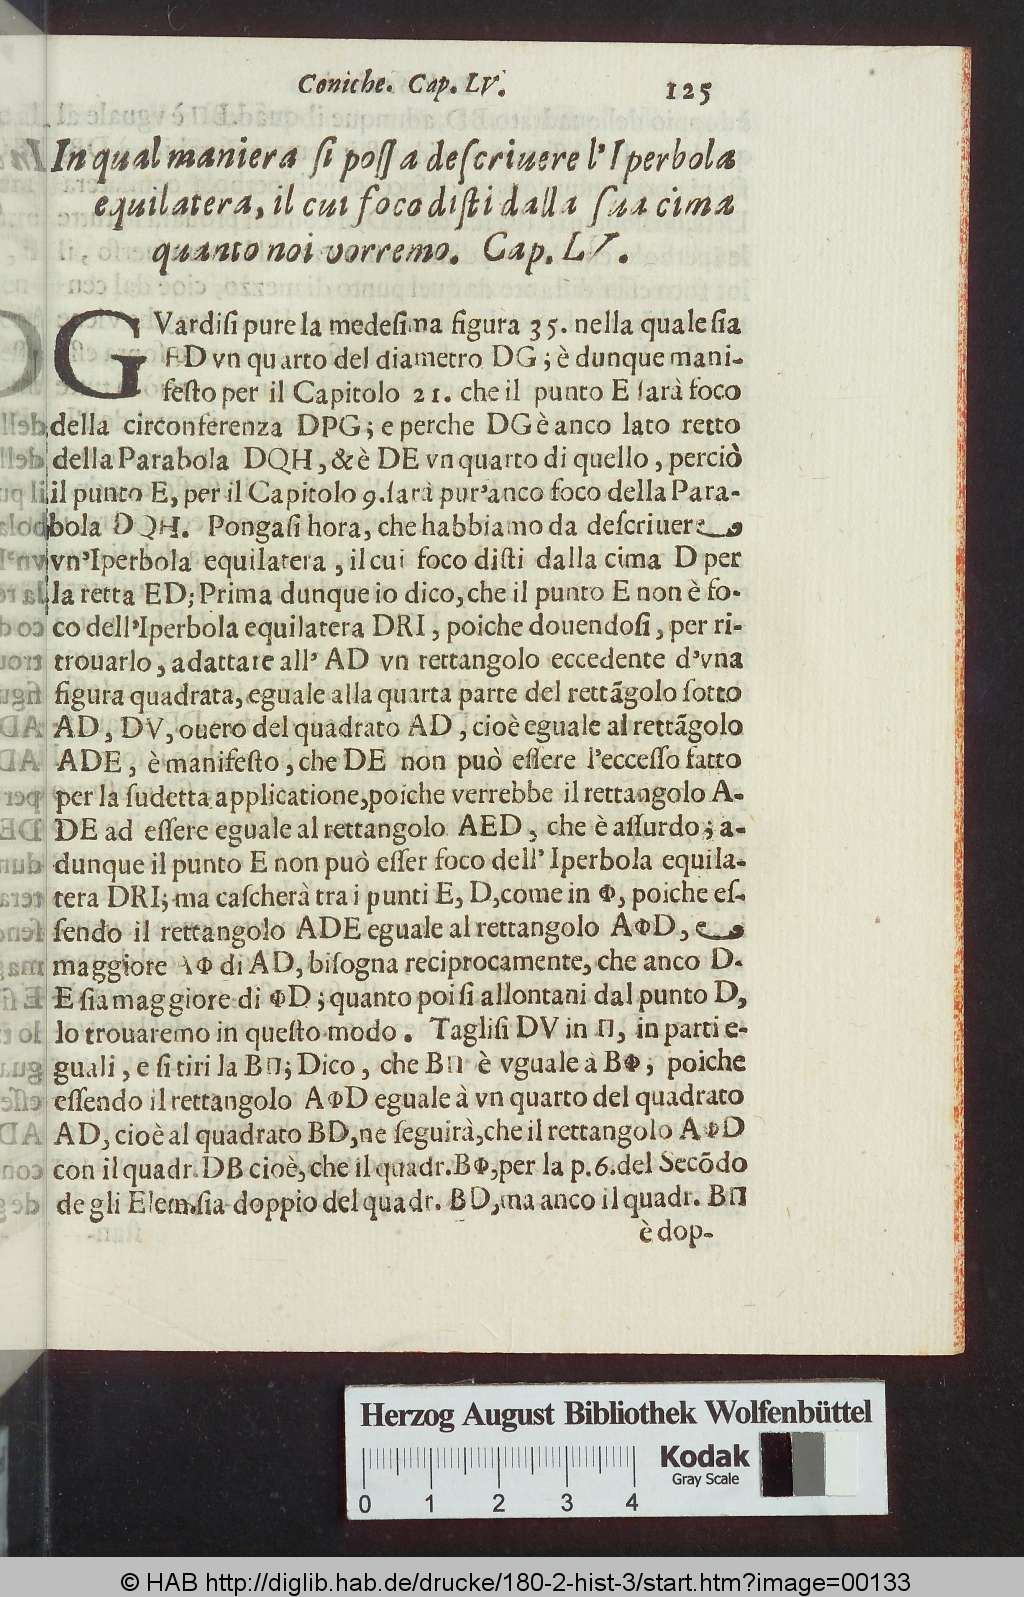 Coniche. Cap. LV. 125
In qual maniera ſi poſſa deſcriuere l'Iperbola
equilatera, il cui foco diſti dalla ſua cima
quanto noi vorremo. Cap. LV.
GVardiſi pure la medeſima figura 35. nella quale ſia
ED vn quarto del diametro DG; è dunque mani-
feſto per il Capitolo 21. che il punto E ſarà foco
della circonferenza DPG; e perche DG è anco lato retto
della Parabola DQH, & è DE vn quarto di quello, perciò
il punto E, per il Capitolo 9. ſarà pur'anco foco della Para-
bola DQH. Pongaſi hora, che habbiamo da deſcriuere
vn'Iperbola equilatera, il cui foco diſti dalla cima D per
la retta ED; Prima dunque io dico, che il punto E non è fo-
co dell'Iperbola equilatera DRI, poiche douendoſi, per ri-
trouarlo, adattare all' AD vn rettangolo eccedente d'vna
figura quadrata, eguale alla quarta parte del rettãgolo ſotto
AD, DV, ouero del quadrato AD, cioè eguale al rettãgolo
ADE, è manifeſto, che DE non può eſſere l'ecceſſo fatto
per la ſudetta applicatione, poiche verrebbe il rettangolo A-
DE ad eſſere eguale al rettangolo AED, che è aſſurdo; a-
dunque il punto E non può eſſer foco dell' Iperbola equila-
tera DRI; ma caſcherà tra i punti E, D, come in Φ, poiche eſ-
ſendo il rettangolo ADE eguale al rettangolo AΦD, e
maggiore AΦ di AD, biſogna reciprocamente, che anco D-
E ſia maggiore di ΦD; quanto poi ſi allontani dal punto D,
lo trouaremo in queſto modo. Tagliſi DV in Π, in parti e-
guali, e ſi tiri la BΠ; Dico, che BΠ è vguale à BΦ; poiche
eſſendo il rettangolo AΦD eguale à vn quarto del quadrato
AD, cioè al quadrato BD, ne ſeguirà, che il rettangolo AΦD
con il quadr. DB cioè, che il quadr. BΦ, per la p. 6. del Secõdo
de gli Elem. ſia doppio del quadr. BD, ma anco il quadr. BΠ
è dop-
Herzog August Bibliothek Wolfenbüttel
Kodak
Gray Scale
0 1 2 3 4
© HAB http://diglib.hab.de/drucke/180-2-hist-3/start.htm?image=00133